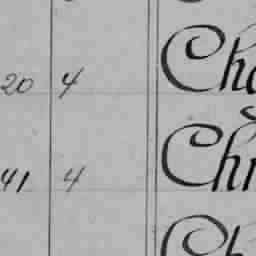 20 4 Cha
41 4 Chr
Ch